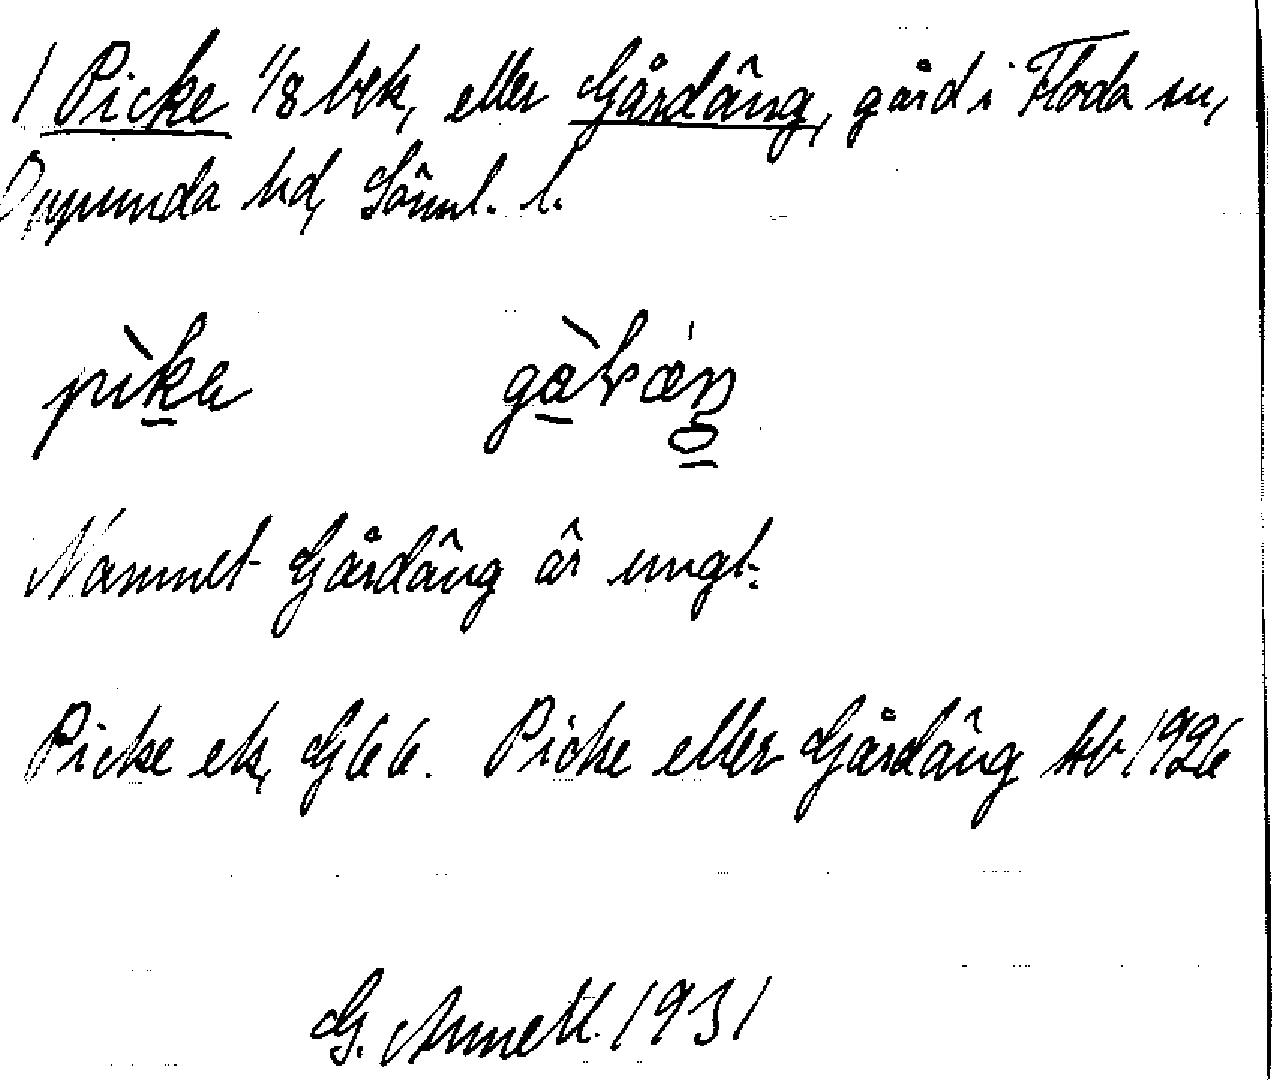 1 Picke 1/8 bek, eller Gårdäng, gård i Floda sn,
Oppunda hd, Sörml. l.
Namnet Gårdäng är ungt.
Picke ek, G66. Picke eller Gårdäng kb 1926
G. Annell. 1931